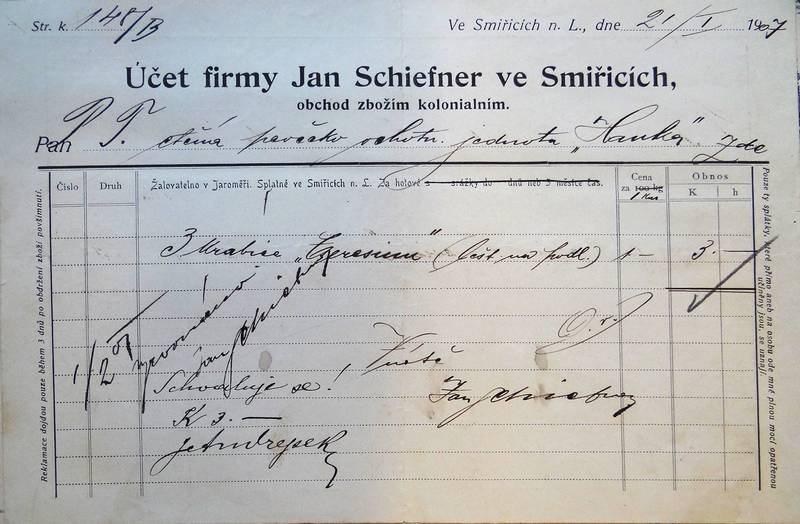 Str. k. 145/B
Ve Smiřicích n. L., dne 21/I 1907
Účet firmy Jan Schiefner ve Smiřicích,
obchod zbožím kolonialním.
Pan P. T. ctěná pěvecko ochotn. jednota „Hanka“ Zde
Číslo
Druh
Žalovatelno v Jaroměři. Splatné ve Smiřicích n. L. Za hotové s srážky do dnů neb 3 měsíce čas.
Cena
za 100 kg
1 Kus
Obnos
K h
3 krabice (lešt na podl.) 1 — 3 —
1/2 07
Jan Schiefner
Schvaluje se!
K 3.—
Jan Schiefner
Reklamace dojdou pouze během 3 dnů po obdržení zboží povšimnutí.
Pouze ty splátky, které přímo aneb na osobu ode mně plnou mocí opatřenou
učiněny jsou, se uznají.